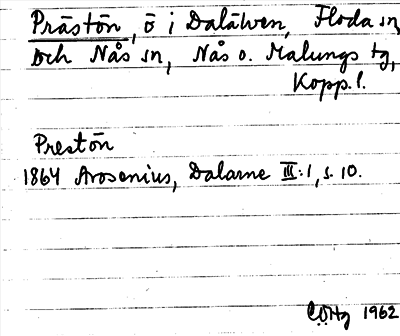 Prästön, ö i Dalälven, Floda sn,
och Nås sn, Nås o. Malungs tg,
Kopp. l.
Prestön
1864 Arosenius, Dalarne III:1, s. 10.
1962